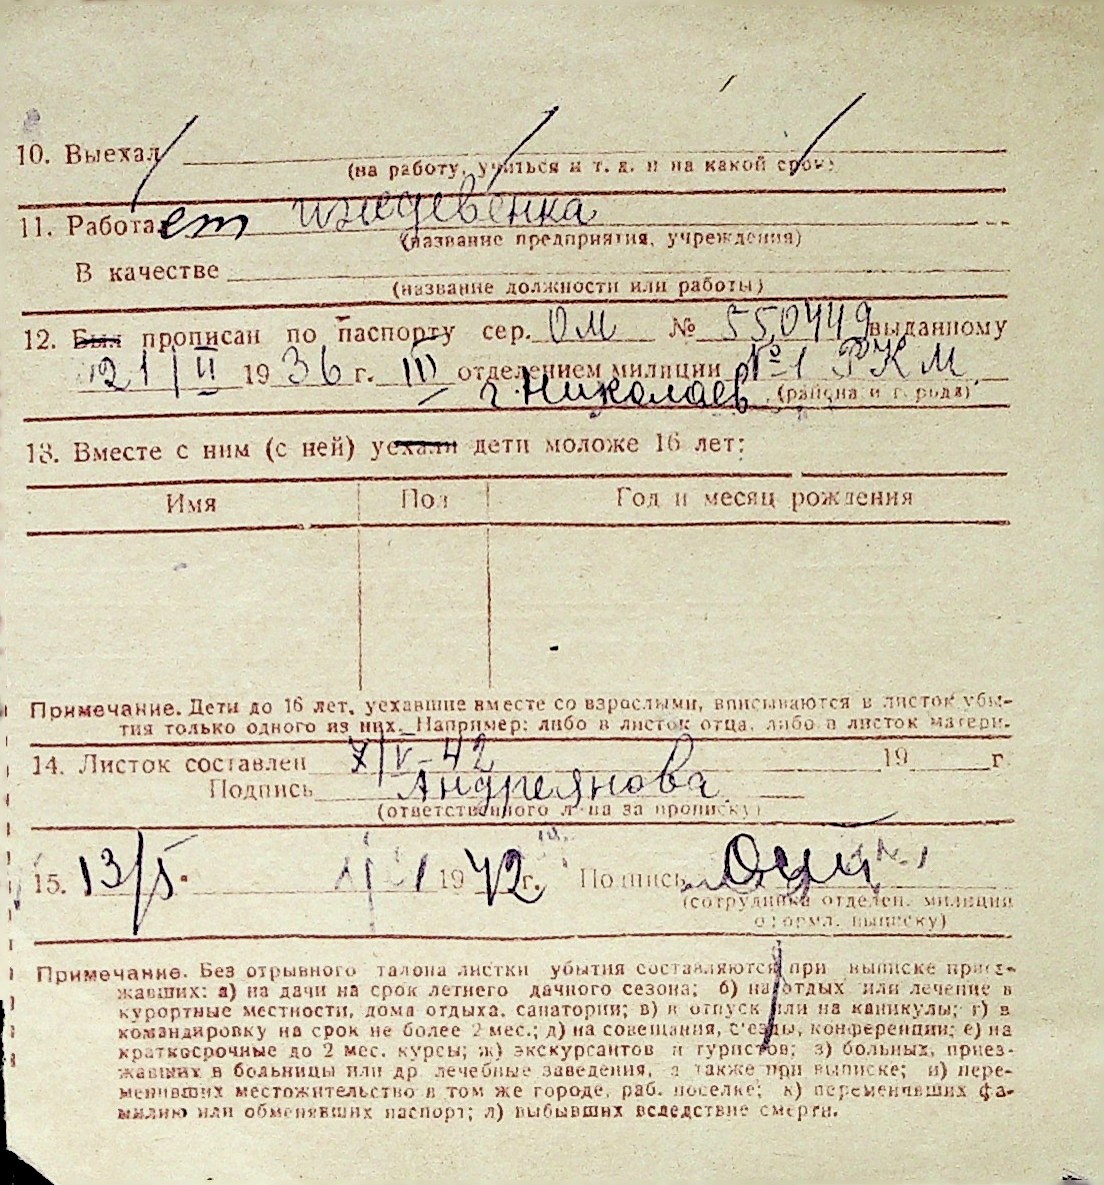 10. Выехал
(на работу, учиться и т. д. и на какой срок)
11. Работает иждевенка
(название предприятия, учреждения)
В качестве
(название должности или работы)
12. Был прописан по паспорту сер. ОМ № 550449 выданному
21/II 1936 г. III отделением милиции №1 РКМ
г. Николаев (района и города)
13. Вместе с ним (с ней) уехали дети моложе 16 лет:
Имя Пол Год и месяц рождения
Примечание. Дети до 16 лет, уехавшие вместе со взрослыми, вписываются в листок убы-
тия только одного из них. Например: либо в листок отца, либо в листок матери.
14. Листок составлен 7/V-42 19 г.
Подпись Андреянова
(ответственного лица за прописку)
15. 13/5. 1942 г. Подпись
(сотрудника отделен. милиции
оформл. выписку)
Примечание. Без отрывного талона листки убытия составляются при выписке приез-
жавших: а) на дачи на срок летнего дачного сезона; б) на отдых или лечение в
курортные местности, дома отдыха, санатории; в) в отпуск или на каникулы; г) в
командировку на срок не более 2 мес.; д) на совещания, с'езды, конференции; е) на
краткосрочные до 2 мес. курсы; ж) экскурсантов и туристов; з) больных, приез-
жавших в больницы или др. лечебные заведения, а также при выписке; и) пере-
менивших местожительство в том же городе, раб. поселке; к) переменивших фа-
милию или обменявших паспорт; л) выбывших вследствие смерти.